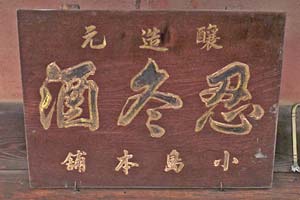 釀造元
忍冬酒
小島本舗